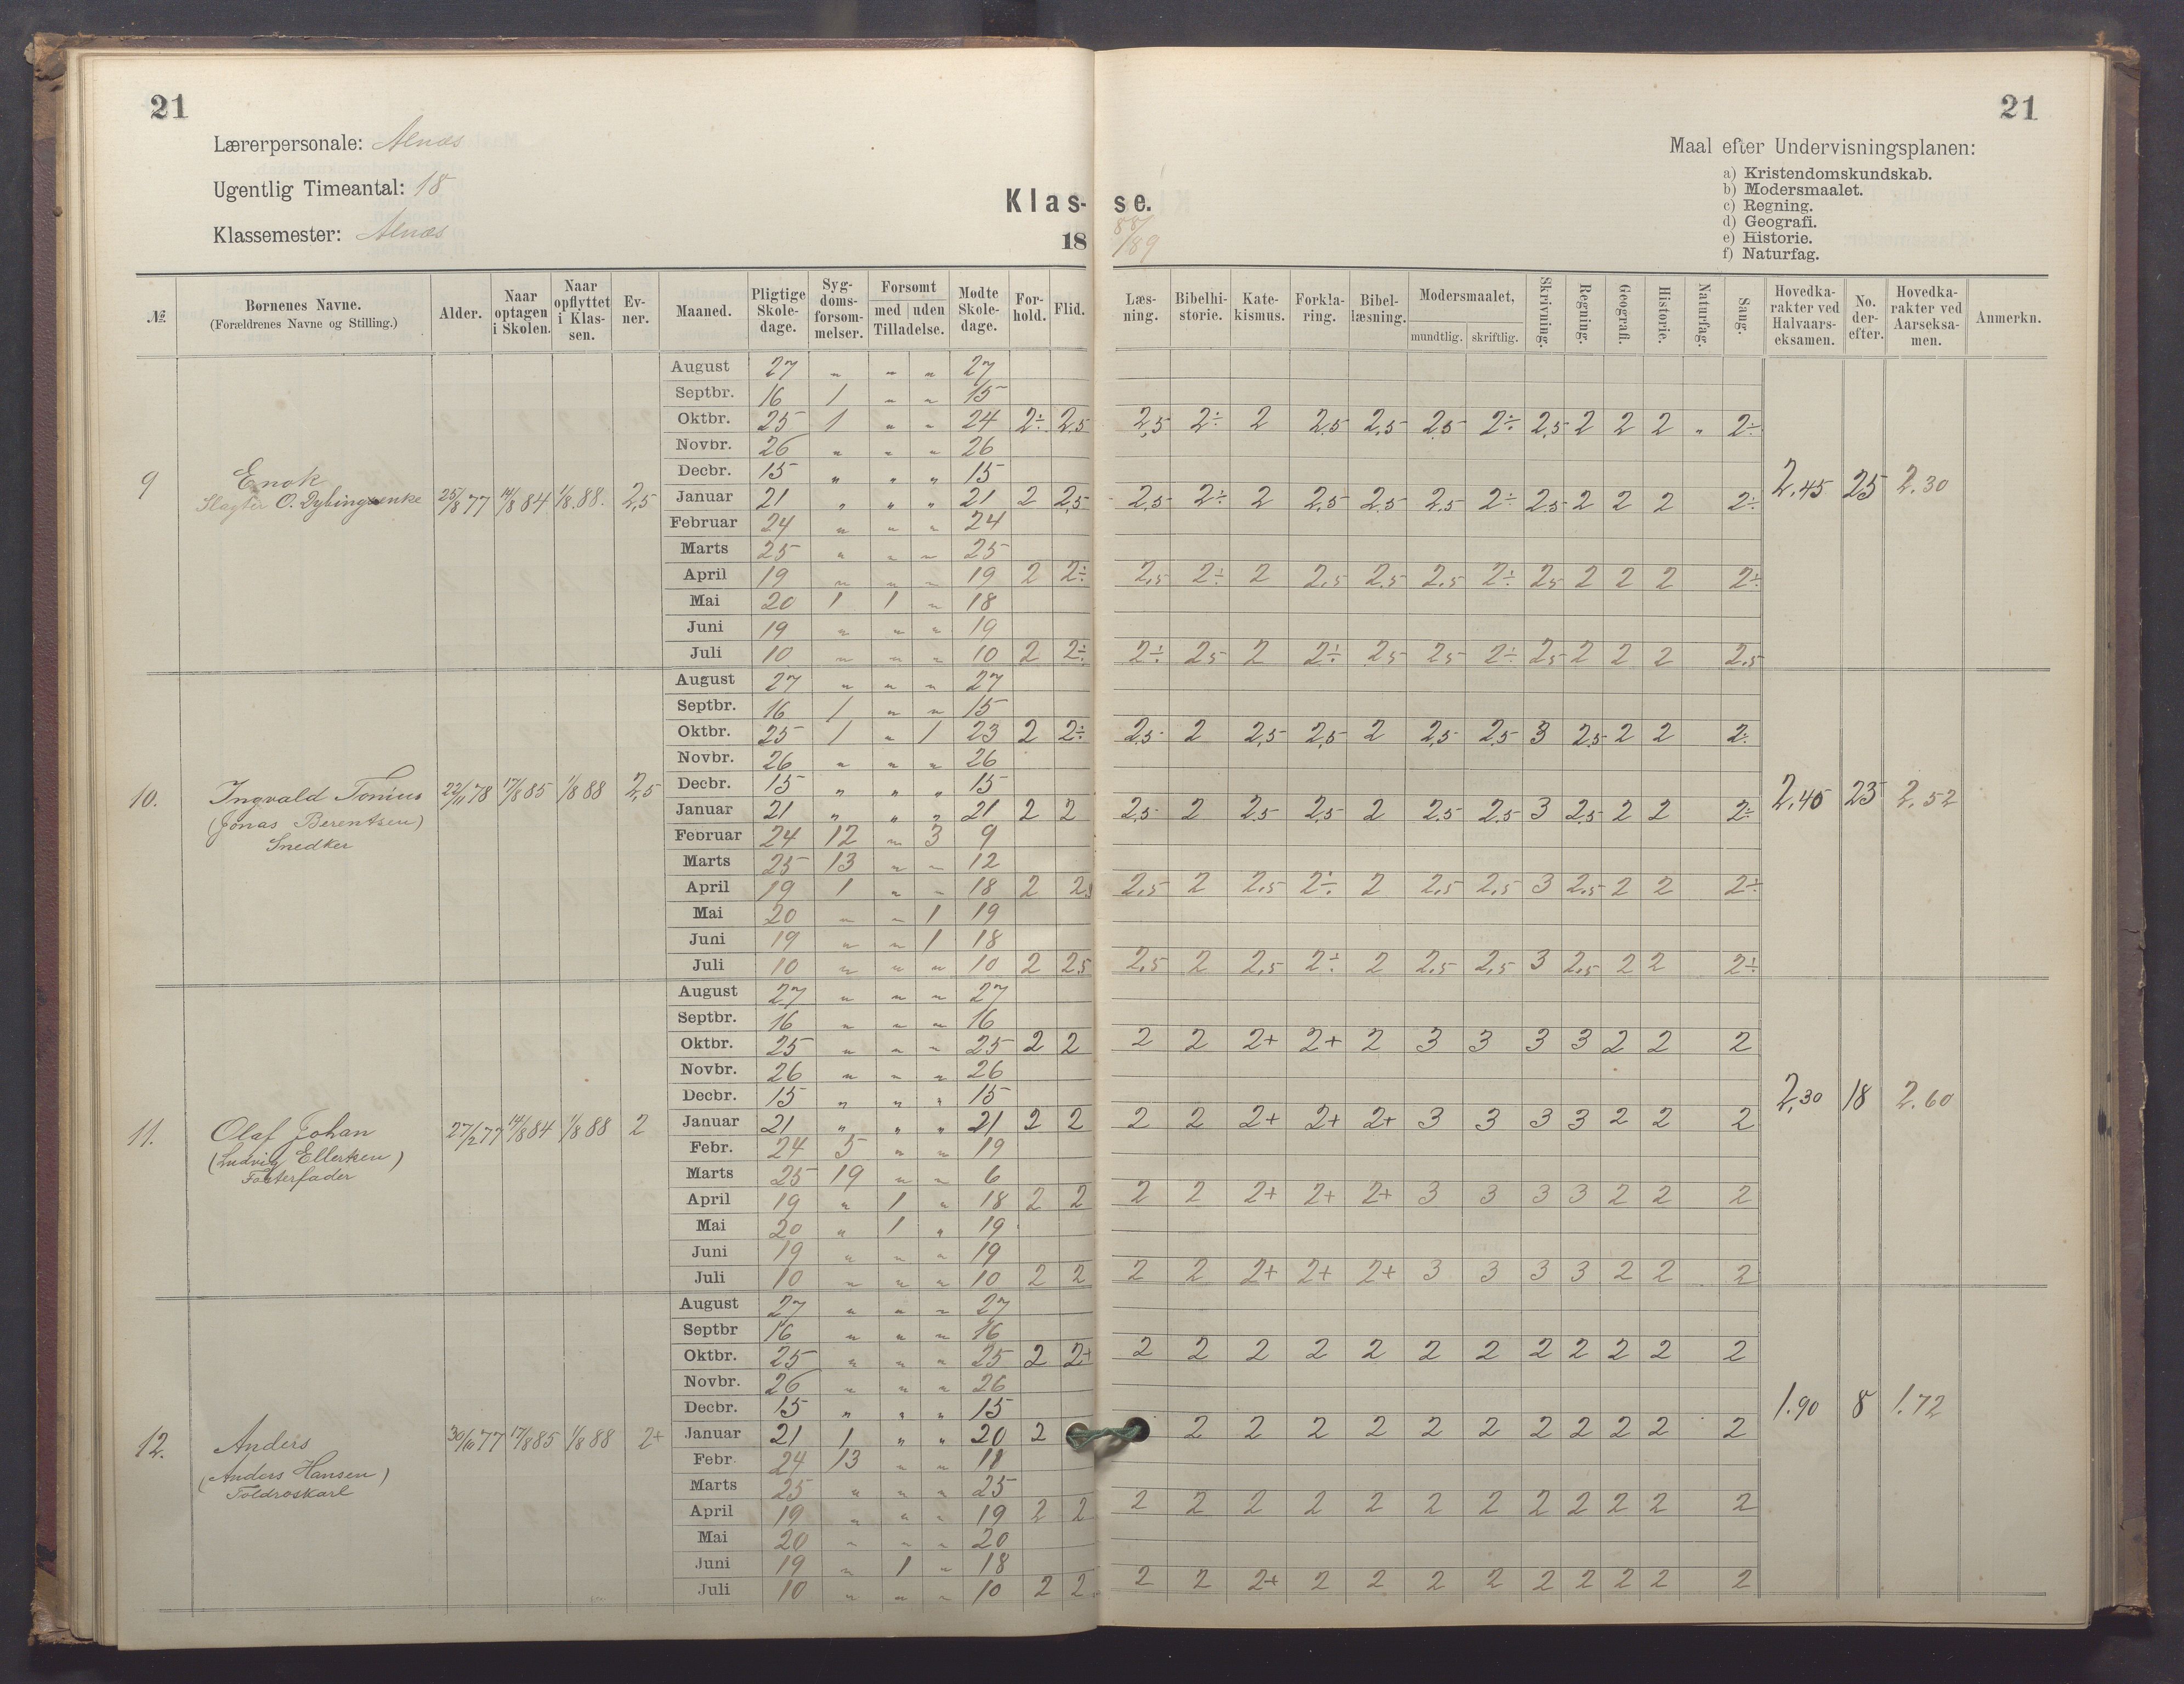 21
21
Lærerpersonale: Alnæs
Ugentlig Timeantal: 18
Klassemester: Alnæs
Klas- se.
18 88/89
Maal efter Undervisningsplanen:
a) Kristendomskundskab.
b) Modersmaalet.
c) Regning.
d) Geografi.
e) Historie.
f) Naturfag.
№. Børnenes Navne. (Forældrenes Navne og Stilling.) Alder. Naar optagen i Skolen. Naar opflyttet i Klassen. Evner. Maaned. Pligtige Skoledage. Sygdomsforsømmelser. Forsømt med | uden Tilladelse. Mødte Skoledage. Forhold. Flid. Læsning. Bibelhistorie. Katekismus. Forklaring. Bibellæsning. Modersmaalet, mundtlig. skriftlig. Skrivning. Regning. Geografi. Historie. Naturfag. Sang. Hovedkarakter ved Halvaarseksamen. No. derefter. Hovedkarakter ved Aarseksamen. Anmerkn.
9 Enok
Slagter O. Dybingsenke 25/8 77 14/8 84 1/8.88. 2,5
2,45 25 2.30
August 27 " " " 27
Septbr. 16 1 " " 15
Oktbr. 25 1 " " 24 2÷ 2,5 2,5 2÷ 2 2,5 2,5 2,5 2÷ 2,5 2 2 2 " 2÷
Novbr. 26 " " " 26
Decbr. 15 " " " 15
Januar 21 " " " 21 2 2,5 2,5 2÷ 2 2,5 2,5 2,5 2÷ 2,5 2 2 2 2÷
Februar 24 " " " 24
Marts 25 " " " 25
April 19 " " " 19 2 2÷ 2,5 2÷ 2 2,5 2,5 2,5 2÷ 2,5 2 2 2 2÷
Mai 20 1 1 " 18
Juni 19 " " " 19
Juli 10 " " " 10 2 2÷ 2÷ 2,5 2 2÷ 2,5 2,5 2÷ 2,5 2 2 2 2,5
10. Ingvald Tonius
(Jonas Berentsen)
Snedker 22/11 78 17/8 85 1/8 88 2,5
2,45 23 2,52
August 27 " " " 27
Septbr. 16 1 " " 15
Oktbr. 25 1 " 1 23 2 2÷ 2,5 2 2,5 2,5 2 2,5 2,5 3 2,5 2 2 2÷
Novbr. 26 " " " 26
Decbr. 15 " " " 15
Januar 21 " " " 21 2 2 2,5 2 2,5 2,5 2 2,5 2,5 3 2,5 2 2 2÷
Februar 24 12 " 3 9
Marts 25 13 " " 12
April 19 1 " " 18 2 2,5 2 2,5 2÷ 2 2,5 2,5 3 2,5 2 2 2÷
Mai 20 " " 1 19
Juni 19 " " 1 18
Juli 10 " " " 10 2 2,5 2,5 2 2,5 2÷ 2 2,5 2,5 3 2,5 2 2 2÷
11. Olaf Johan
(Ludvig Ellertsen)
Fosterfader 27/2 77 14/8 84 1/8 88 2
2,30 18 2.60
August 27 " " " 27
Septbr. 16 " " " 16
Oktbr. 25 " " " 25 2 2 2 2 2+ 2+ 2 3 3 3 3 2 2 2
Novbr. 26 " " " 26
Decbr. 15 " " " 15
Januar 21 " " " 21 2 2 2 2 2+ 2+ 2+ 3 3 3 3 2 2 2
Febr. 24 5 " " 19
Marts 25 19 " " 6
April 19 " 1 " 18 2 2 2 2 2+ 2+ 2+ 3 3 3 3 2 2 2
Mai 20 " 1 " 19
Juni 19 " " " 19
Juli 10 " " " 10 2 2 2 2 2+ 2+ 2+ 3 3 3 3 2 2 2
12. Anders
(Anders Hansen)
Toldroskarl 30/10 77 17/8 85 1/8 88 2+
1.90 8 1.72
August 27 " " " 27
Septbr 16 " " " 16
Oktbr. 25 " " " 25 2 2+ 2 2 2 2 2 2 2 2 2 2 2 2
Novbr. 26 " " " 26
Decbr. 15 " " " 15
Januar 21 1 " " 20 2 2 2 2 2 2 2 2 2 2 2 2
Febr. 24 13 " " 11
Marts 25 " " " 25
April 19 " " " 19 2 2 2 2 2 2 2 2 2 2 2 2 2 2
Mai 20 " " " 20
Juni 19 " 1 " 18
Juli 10 " " " 10 2 2 2 2 2+ 2 2 2 2 2 2 2 2 2